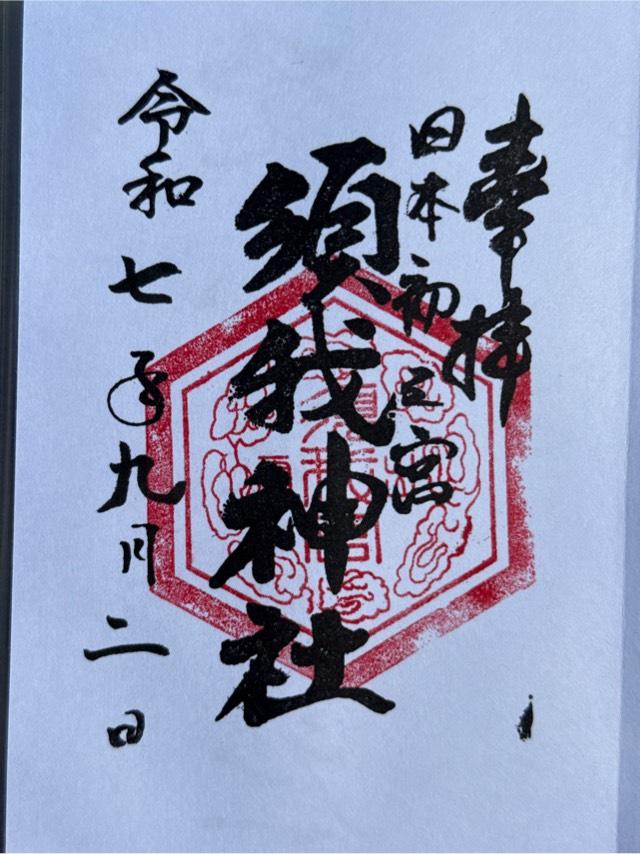 奉拝
日本初之宮
須我神社
令和七年九月二日